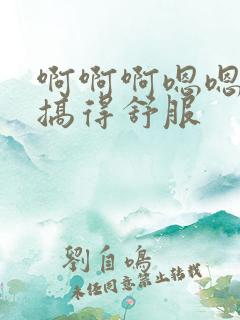 啊啊啊嗯嗯
搞得舒服
劉自鳴
未经同意禁止转载